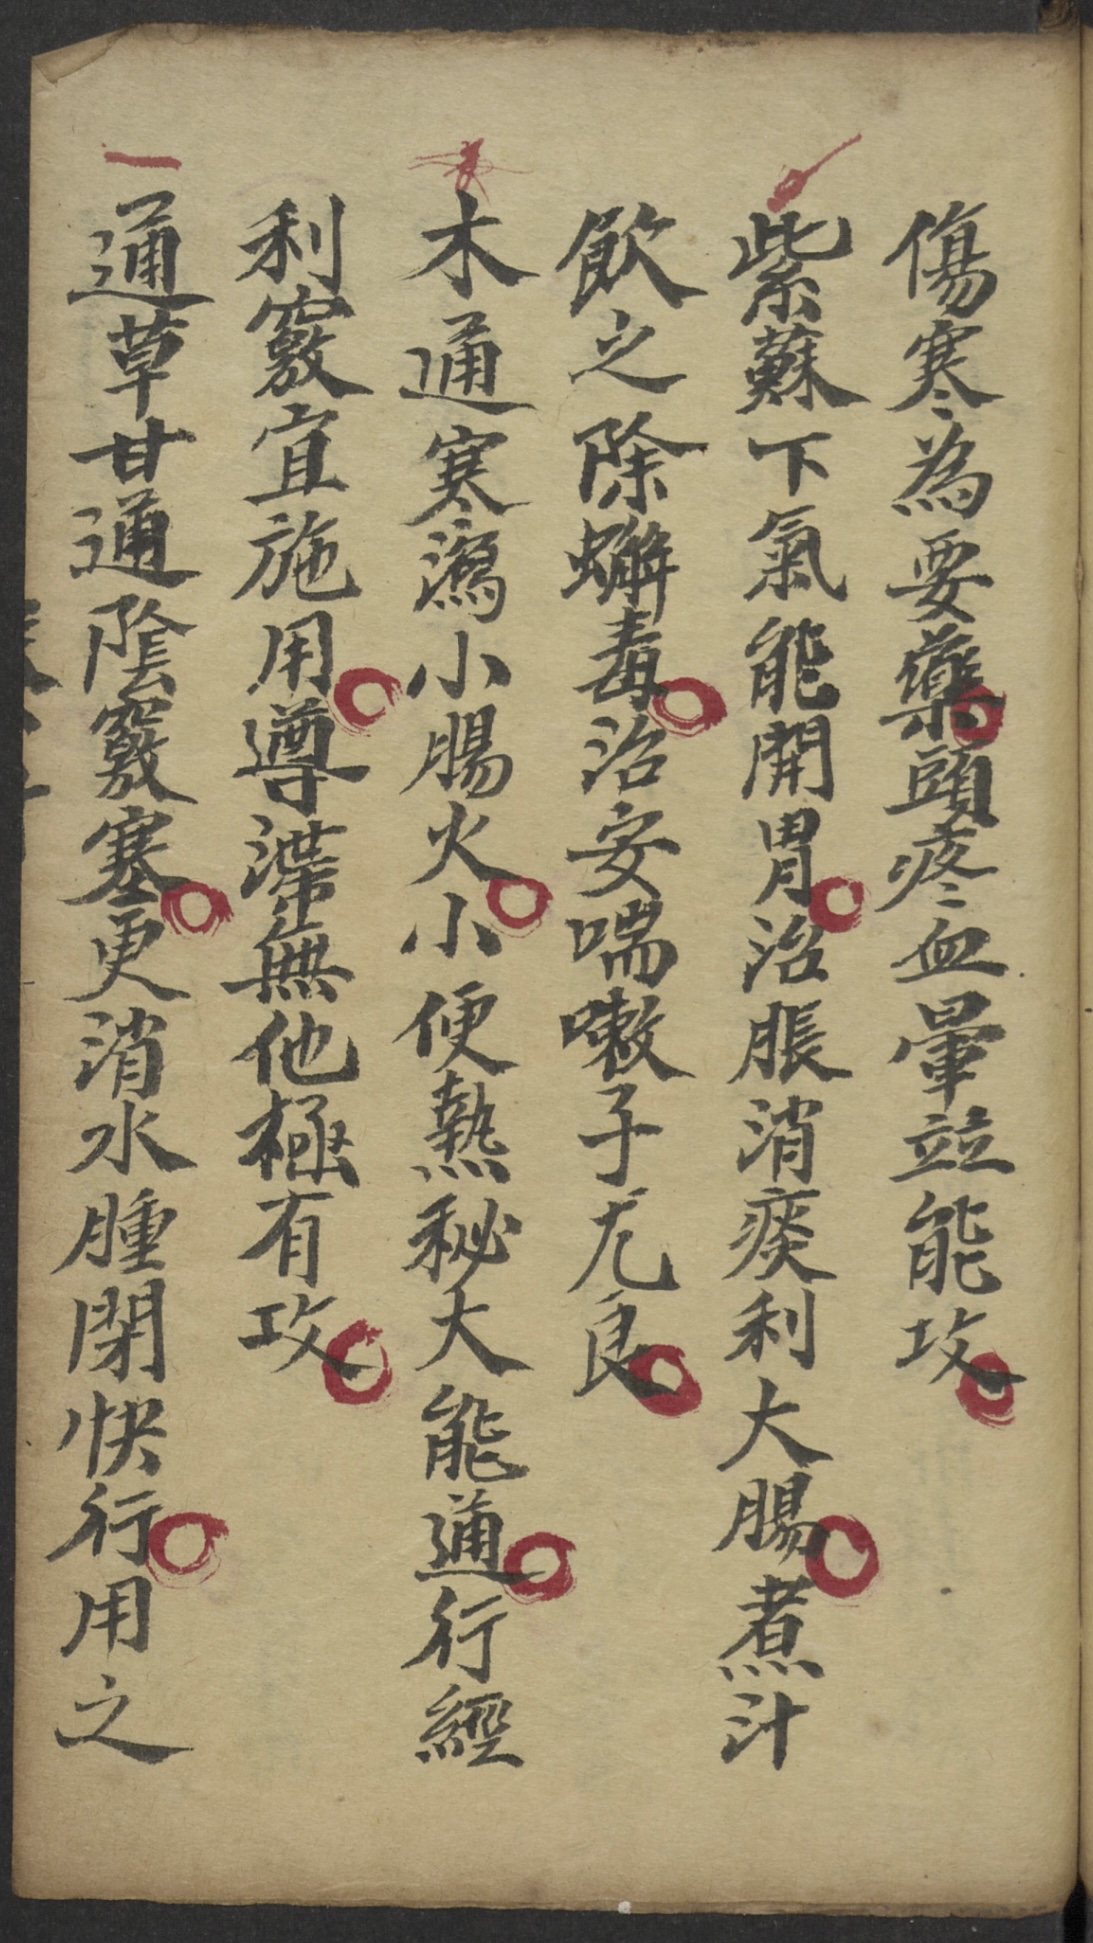 傷寒為要藥頭疼血暈竝能攻
紫蘇下氣能開胃治脹消痰利大腸煮汁
飲之除蠏毒治安喘嗽子尤良
木通寒瀉小腸火小便熱秘大能通行經
利竅宜施用導滯無他極有攻
通草甘通陰竅塞更消水腫閉快行用之